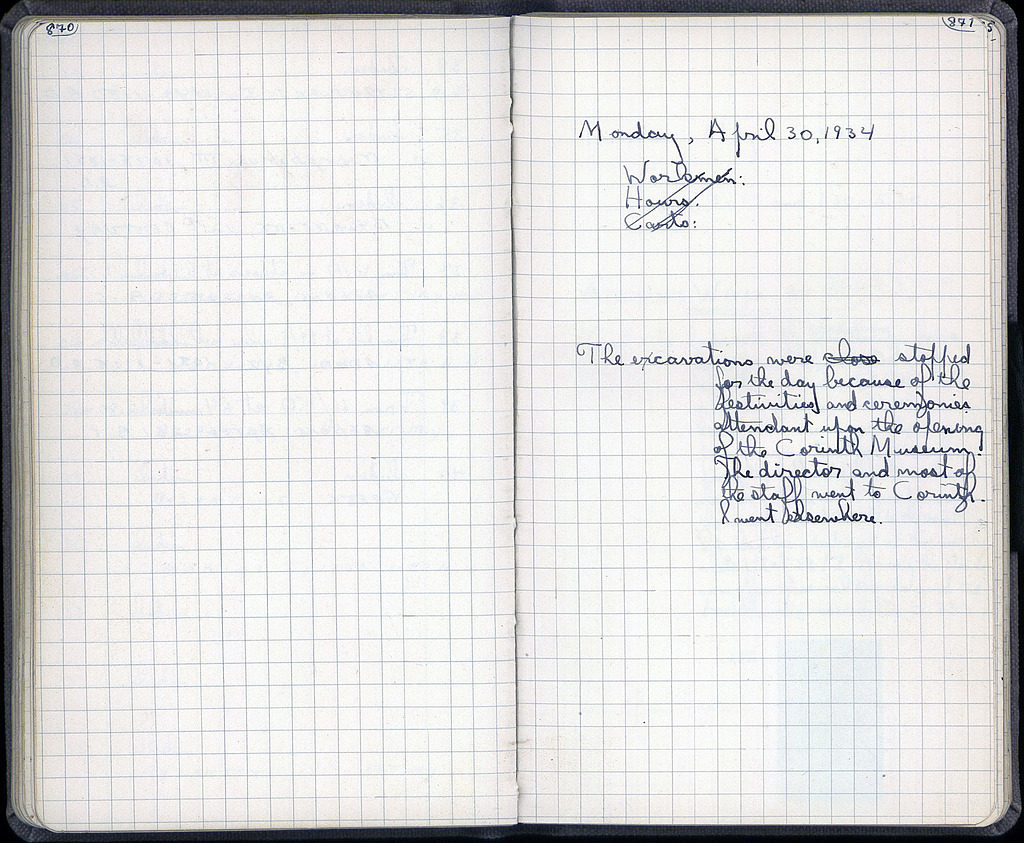 870
871
Monday, April 30, 1934
Workmen:
Hours:
Carts:
The excavations were close stopped
for the day because of the
festivities and ceremonies
attendant upon the opening
of the Corinth Museum.
The director and most of
the staff went to Corinth.
I went elsewhere.